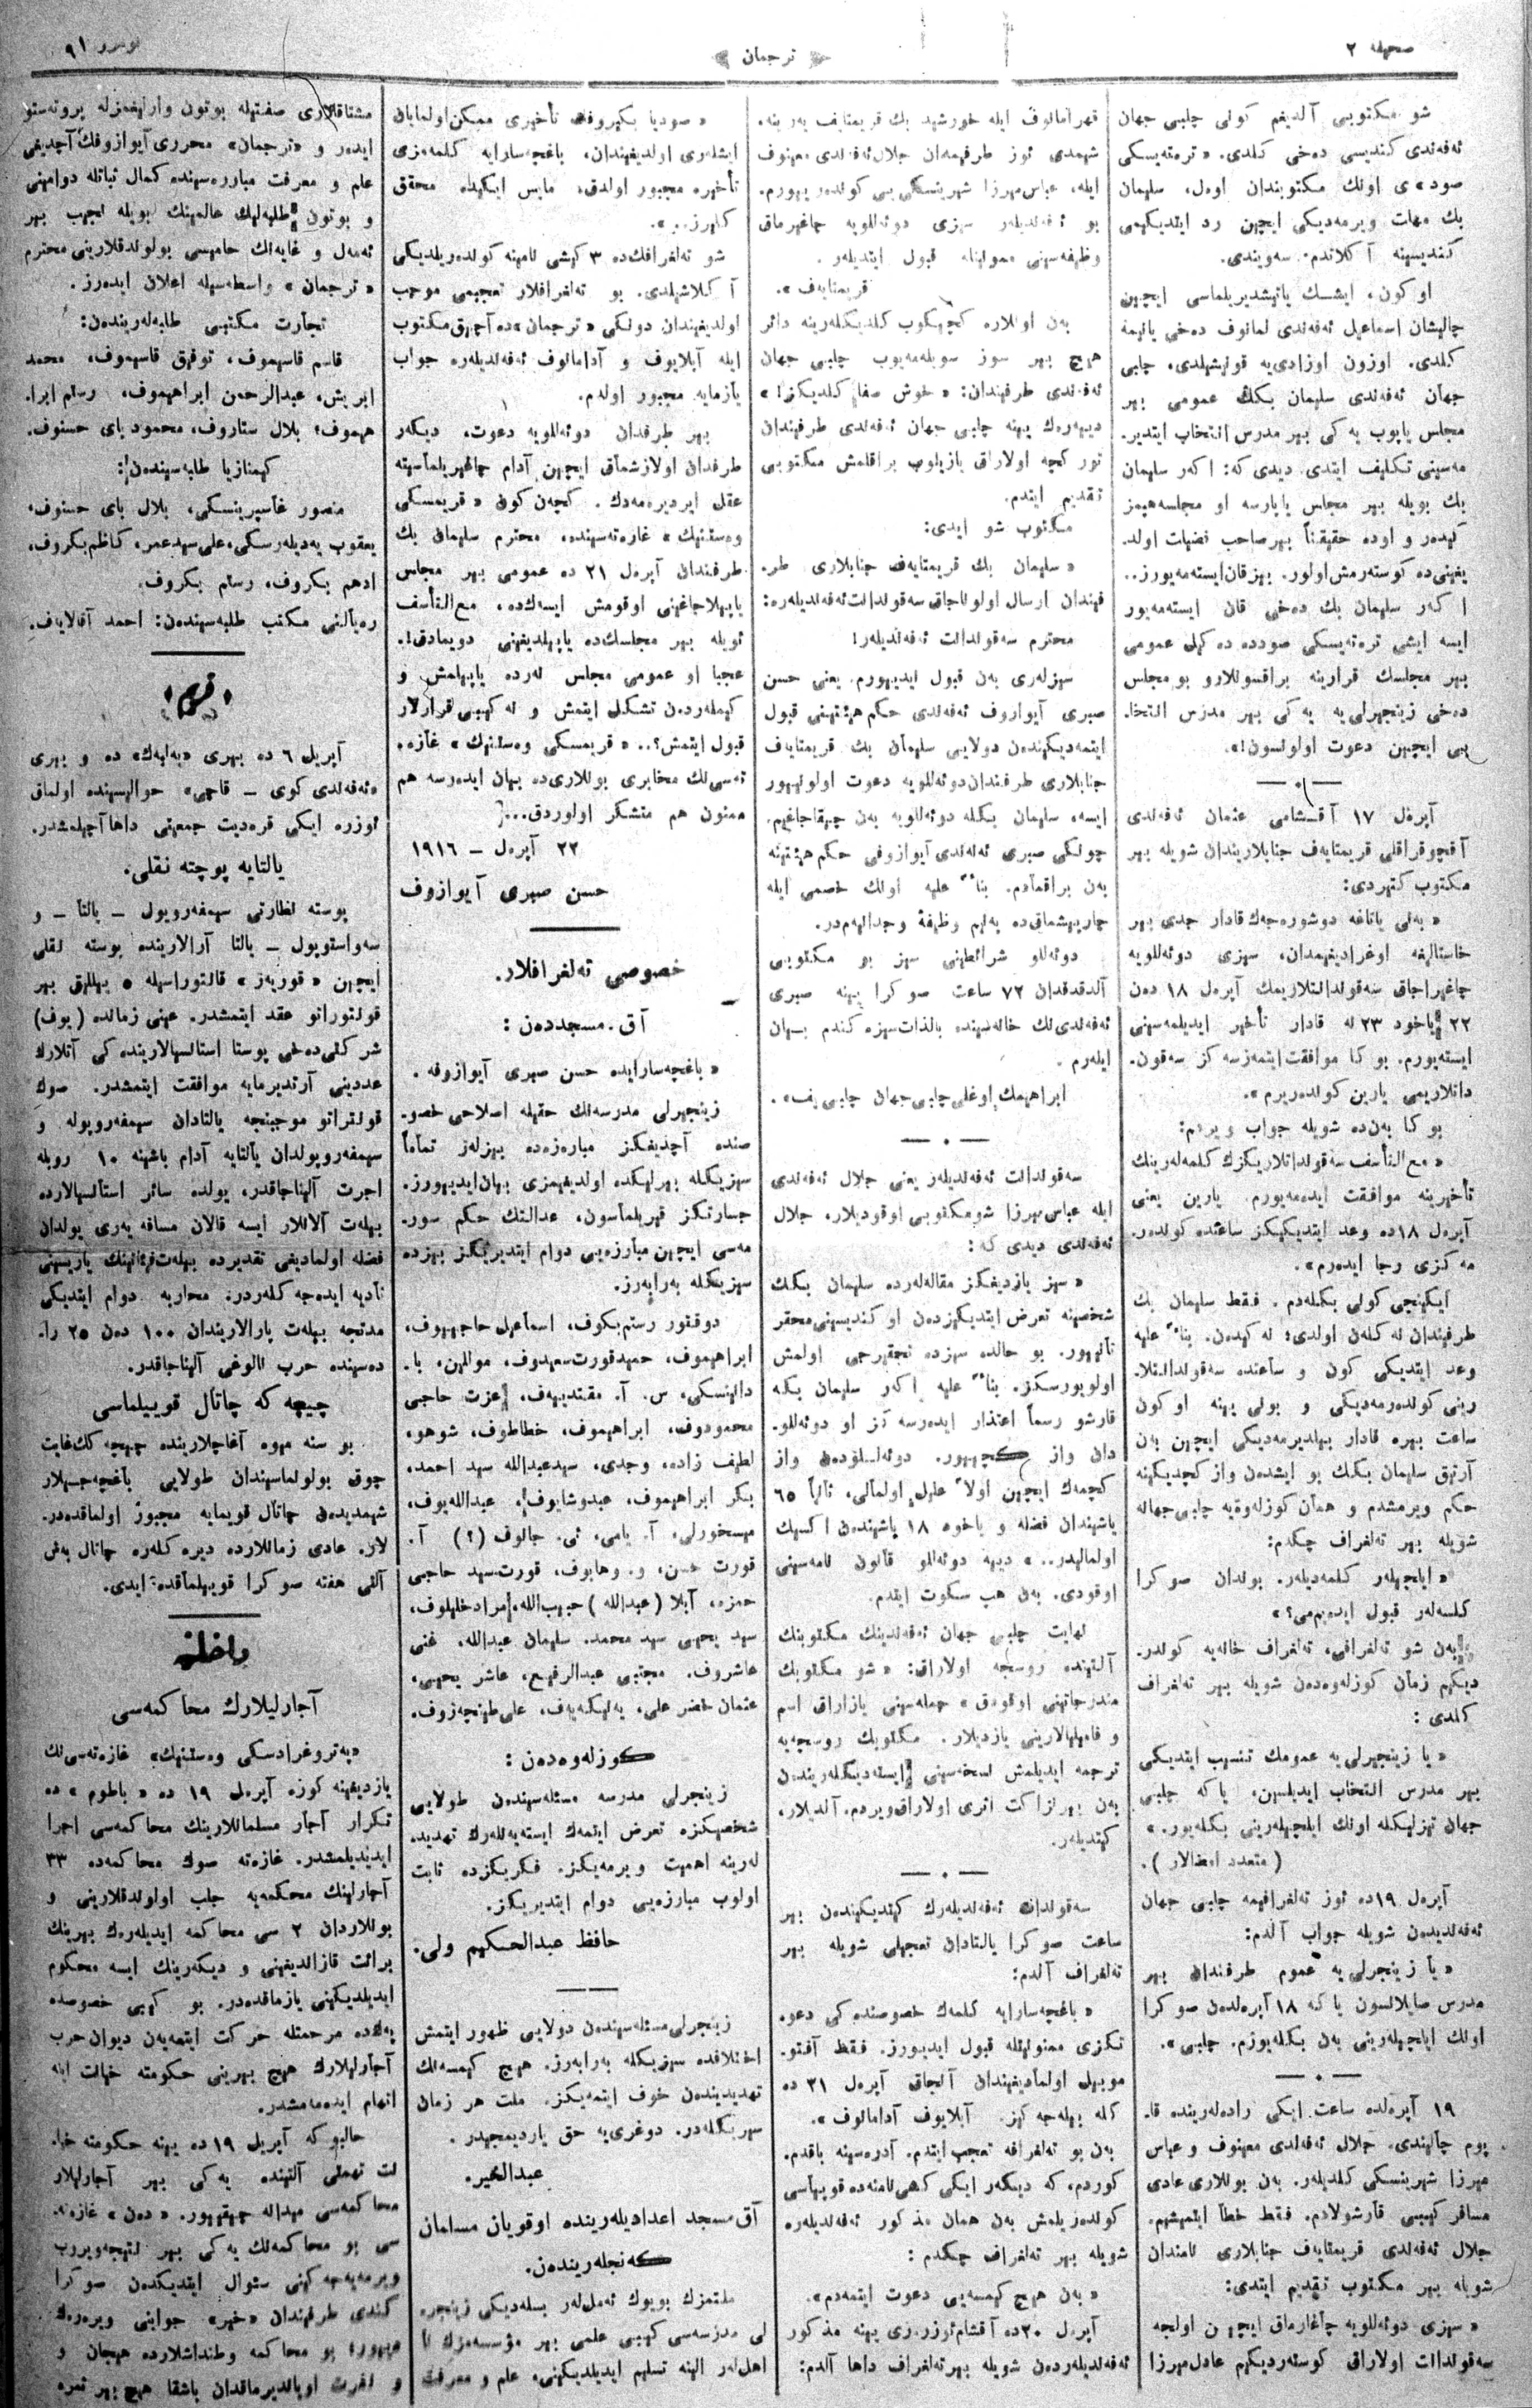 صحیفه ۲
ترجمان
شو مكتوبی آلدیغم كونی چلبی جهان
ئه‌فه‌ندی كندیسی ده‌خی كلدی. «تره‌ته‌یسكی
صود» ی اونك مكتوبندان اوه‌ل، سلیمان
بك مهلت ویرمه‌دیكی ایچین رد ایتدیكیمی
كندیسینه آكلاتدم. سه‌ویندی.
او كون، ایشك یاتیشدیریلماسی ایچین
چالیشان اسماعیل ئه‌فه‌ندی لمانوف ده‌خی یانیمه
كلدی. اوزون اوزادی‌یه قونیشیلدی، چلبی
جهان ئه‌فه‌ندی سلیمان بكك عمومی بیر
مجلس یاپوب یه‌كی بیر مدرس انتخاب ایتدیر-
مه‌سینی تكلیف ایتدی. دیدی كه: اكه‌ر سلیمان
بك بویله بیر مجلس یاپارسه او مجلسه هیمز
كیده‌ر و اوده حقیقتاً بیر صاحب فضیلت اولد-
یغینی‌ده كوسته‌رمش اولور. بیز قان ایسته‌مه‌یورز..
اكه‌ر سلیمان بك ده‌خی قان ایسته‌مه‌یور
ایسه ایشی تره‌ته‌یسكی صودده ده كیل عمومی
بیر مجلسك قرارینه براقسونلارو بو مجلس
ده‌خی زینجیرلی‌یه یه‌كی بیر مدرس انتخا-
بی ایچین دعوت اولونسون!».
آپره‌ل ۱۷ آقشامی عثمان ئه‌فه‌ندی
آقچوقراقلی قریمتایه‌ف جنابلاریندان شویله بیر
مكتوب كتیردی:
«به‌نی یاتاغه دوشوره‌جه‌ك قادار جدی بیر
خاستالیغه اوغرادیغیمدان، سیزی دوئه‌للویه
چاغیراجاق سه‌قوندانتلاریمك آپره‌ل ۱۸ ده‌ن
۲۲ یاخود ۲۳ نه قادار تأخیر ایدیلمه‌سینی
ایسته‌یورم. بو كا موافقت ایتمه‌زسه كز سه‌قون-
دانتلاریمی یارین كونده‌ریرم».
بو كا به‌ن‌ده شویله جواب ویردم:
«مع‌التأسف سه‌قوندانتلاریكزك كلمه‌له‌رینك
تأخیرینه موافقت ایده‌مه‌یورم. یارین یعنی
آپره‌ل ۱۸ده وعد ایتدیكیكز ساعتده كونده‌ر-
مه كزی رجا ایده‌رم».
ایكینجی كونی بكله‌دم. فقط سلیمان بك
طرفیندان نه كله‌ن اولدی؛ نه كیده‌ن. بناءً علیه
وعد ایتدیكی كون و ساعتده سه‌قوندانتلا-
رینی كونده‌رمه‌دیكی و بونی یینه او كون
ساعت بیره قادار بیلدیرمه‌دیكی ایچین به‌ن
آرتیق سلیمان بكك بو ایشدن واز كچدیكینه
حكم ویرمشدم و همان كوزله‌وه‌یه چلبی جهانه
شویله بیر ته‌لغراف چكدم:
«ایلچیله‌ر كلمه‌دیله‌ر. بوندان صو كرا
كلسه‌لر قبول ایده‌یم‌می؟»
به‌ن شو ته‌لغرافی، ته‌لغراف خانه‌یه كوند-
دیكم زمان كوزله‌وه‌دن شویله بیر ته‌لغراف
كلدی:
«یا زینجیرلی‌یه عمومك تنسیب ایتدیكی
بیر مدرس انتخاب ایدیلسین، یا كه چلبی
جهان تیزلیكله اونك ایلچیله‌رینی بكله‌یور.»
(متعدد امضالار).
آپره‌ل ۱۹ده ئوز ته‌لغرافیمه چلبی جهان
ئه‌فه‌ندیدن شویله جواب آلدم:
«یا زینجرلی‌یه عموم طرفندان بیر
مدرس صایلانسون یا كه ۱۸ آپره‌لدن صو كرا
اونك ایلچیله‌رینی به‌ن بكله‌یورم. چلبی».
۱۹ آپره‌لده ساعت ایكی راده‌له‌رینده قا-
پوم چالیندی. جلال ئه‌فه‌ندی معینوف و عباس
میرزا شیرینسكی كلدیله‌ر. به‌ن بونلاری عادی
مسافر كیبی قارشولادم. فقط خطا ایتمیشیم.
جلال ئه‌فه‌ندی قریمتایه‌ف جنابلاری نامندان
شویله بیر مكتوب تقدیم ایتدی:
«سیزی دوئه‌للویه چاغارماق ایچین اولجه
سه‌قوندانت اولاراق كوسته‌ردیكیم عادل میرزا
قهرامانوف ایله خورشید بك قریمتایف یه‌رینه،
شیمدی ئوز طرفیمدان جلال ئه‌فه‌ندی معینوف
ایله، عباس میرزا شیرینسكی‌یی كونده‌ریپورم.
بو ئه‌فه‌ندیله‌ر سیزی دوئه‌للویه چاغیرماق
وظیفه‌سینی ممنونیتله قبول ایتدیله‌ر.
قریمتایه‌ف».
به‌ن اونلاره كچیكوب كلدیكله‌رینه دائر
هیچ بیر سوز سویله‌مه‌یوب چلبی جهان
ئه‌فه‌ندی طرفیندان: «خوش صفا كلدیكز!»
دییه‌ره‌ك یینه چلبی جهان ئه‌فه‌ندی طرفیندان
توركچه اولاراق یازیلوب براقلمش مكتوبی
تقدیم ایتدم.
مكتوب شو ایدی:
«سلیمان بك قریمتایه‌ف جنابلاری طر-
فیندان ارسال اولوناجاق سه‌قوندانت ئه‌فه‌ندیله‌ره:
محترم سه‌قوندانت ئه‌فه‌ندیله‌ر!
سیزله‌ری به‌ن قبول ایدییورم. یعنی حسن
صبری آیوازوف ئه‌فه‌ندی حكم هیئتینی قبول
ایتمه‌دیكیندن دولایی سلیمان بك قریمتایه‌ف
جنابلاری طرفندان دوئه‌للویه دعوت اولونییور
ایسه، سلیمان بكله دوئه‌للویه به‌ن چیقاجاغیم.
چونكی صبری ئه‌فه‌ندی آیوازوفی حكم هیئتینه
به‌ن براقمادم. بناءً علیه اونك خصمی ایله
چارپیشمق‌ده به‌نیم وظیفهٔ وجدانیم‌در.
دوئه‌للو شرائطینی سیز بو مكتوبی
آلدقدان ۷۲ ساعت صو كرا یینه صبری
ئه‌فه‌ندی‌نك خانه‌سینده بالذات سیزه كندم بیان
ایله‌رم.
ابراهیمك اوغلی چلبی جهان چلبی‌یف».
سه‌قوندانت ئه‌فه‌ندیله‌ر یعنی جلال ئه‌فه‌ندی
ایله عباس میرزا شو مكتوبی اوقودیلار. جلال
ئه‌فه‌ندی دیدی كه:
«سیز یازدیغكز مقاله‌له‌رده سلیمان بكك
شخصینه تعرض ایتدیكیزدن او كندیسینی محقر
تانییور. بو حالده سیزده تحقیرجی اولمش
اولویورسكز. بناءً علیه اكه‌ر سلیمان بكه
قارشو رسماً اعتذار ایده‌رسه كز او دوئه‌للو-
دان واز كچییور. دوئه‌للودن واز
كچمه‌ك ایچین اولاً علیل اولمالی، ثانیاً ۶۵
یاشیندان فضله و یاخود ۱۸ یاشیندن اكسیك
اولمالیدر..» دییه دوئه‌للو قانون نامه‌سینی
اوقودی. به‌ن هب سكوت ایتدم.
نهایت چلبی جهان ئه‌فه‌ندینك مكتوبنك
آلتینده روسجه اولاراق: «شو مكتوبك
مندرجاتینی اوقودق» جمله‌سینی یازاراق اسم
و فامیلیالارینی یازدیلار. مكتوبك روسچه‌یه
ترجمه ایدیلمش نسخه‌سینی ایسته‌دیكله‌ریندن
به‌ن بیر نزاكت اثری اولاراق ویردم. آلدیلار،
كیتدیله‌ر.
سه‌قوندانت ئه‌فه‌ندیله‌رك كیتدیكیندن بیر
ساعت صو كرا یالتادان تعجیلی شویله بیر
ته‌لغراف آلدم:
«باغچه‌سارایه كلمه‌ك خصوصنده كی دعو-
تكزی ممنونیتله قبول ایدیورز. فقط آفتو-
موبیل اولمادیغیندان آنجاق آپره‌ل ۲۱ ده
كله بیله‌جه كیز. آبلایوف آدامانوف».
به‌ن بو ته‌لغرافه تعجب ایتدم. آدره‌سینه باقدم.
كوردم، كه دیكه‌ر ایكی كشی نامنه‌ده قوپیاسی
كونده‌ریلمش به‌ن همان مذكور ئه‌فه‌ندیله‌ره
شویله بیر ته‌لغراف چكدم:
«به‌ن هیچ كیمسه‌یی دعوت ایتمه‌دم».
آپره‌ل ۲۰ده آقشام ئوزه‌ری یینه مذكور
ئه‌فه‌ندیله‌ردن شویله بیر ته‌لغراف داها آلدم:
«صودیا بكیروف تأخیری ممكن اولمایان
ایشله‌ری اولدیغیندان، باغچه‌سارایه كلمه‌مزی
تأخیره مجبور اولدق، مایس ایكیده محقق
كلیرز..».
شو ته‌لغرافك‌ده ۳ كیشی نامینه كونده‌ریلدیكی
آكلاشیلدی. بو ته‌لغرافلار تعجبمی موجب
اولدیغیندان دونكی «ترجمان»ده آچیق مكتوب
ایله آبلایوف و آدامانوف ئه‌فه‌ندیله‌ره جواب
یازمایه مجبور اولدم.
بیر طرفدان دوئه‌للویه دعوت، دیكه‌ر
طرفدان اولازشماق ایچین آدام چاغیریلماسینه
عقل ایردیره‌مه‌دك. كچه‌ن كون «قریمسكی
وه‌ستنیك» غازه‌ته‌سینده، محترم سلیمان بك
طرفندان آپره‌ل ۲۱ ده عمومی بیر مجلس
یاپیلاجاغینی اوقومش ایسه‌ك‌ده، مع‌التأسف
ئویله بیر مجلسك‌ده یاپیلدیغینی دویمادق!.
عجبا او عمومی مجلس نه‌رده یاپیلمش و
كیمله‌ردن تشكل ایتمش و نه كیبی قرارلار
قبول ایتمش؟.. «قریمسكی وه‌ستنیك» غازه-
ته‌سی‌نك مخابری بونلاری‌ده بیان ایده‌رسه هم
ممنون هم متشكر اولوردق....
۲۲ آپره‌ل – ۱۹۱۶
حسن صبری آیوازوف
خصوصی ته‌لغرافلار.
آق-مسجددن:
«باغچه‌سارایده حسن صبری آیوازوفه.
زینجیرلی مدرسه‌نك حقیله اصلاحی خصو-
صنده آچدیغكز مبارزه‌ده بیزله‌ر تماماً
سیزیكله بیرلیكده اولدیغیمزی بیان ایدییورز.
جسارتكز قیریلماسون، عدالتك حكم سور-
مه‌سی ایچین مبارزه‌یی دوام ایتدیریكز بیزده
سیزیكله به‌رابه‌رز.
دوقتور رستم‌بكوف، اسماعیل حاجییوف،
ابراهیموف، حمیدقورت‌سعیدوف، موللین، با-
دانینسكی، س. آ. مفتدییه‌ف، عزت حاجی
محمودوف، ابراهیموف، خطاطوف، شوهو،
لطیف زاده، وجدی، سیدعبدالله سید احمد،
بكر ابراهیموف، عبدوشایوف، عبدالله‌یوف،
میسخورلی، آ. یامی، ئی. جالوف (؟) آ.
قورت حسن، و. وهابوف، قورت‌سید حاجی
حمزه، آبلا (عبدالله) حبیب‌الله، مراد خلیلوف،
سید یحیی سید محمد، سلیمان عبدالله، غنی
عاشروف، مجتبی عبدالرفیع، عاشر یحیی،
عثمان خضر علی، یه‌لیكه‌یه‌ف، علی طینچه‌زوف.
كوزله‌وه‌دن:
زینجرلی مدرسه مسئله‌سیندن طولایی
شخصیكزه تعرض ایتمه‌ك ایسته‌یه‌نله‌رك تهدید-
له‌رینه اهمیت ویرمه‌یكز. فكریكزده ثابت
اولوب مبارزه‌یی دوام ایتدیریكز.
حافظ عبدالحكیم ولی.
زینجرلی مسئله‌سیندن دولایی ظهور ایتمش
اختلافده سیزیكله به‌رابه‌رز. هیچ كیمسه‌نك
تهدیدیندن خوف ایتمه‌یكز. ملت هر زمان
سیزیكله‌در. دوغری‌یه حق یاردیمجیدر.
عبدالخیر.
آق‌مسجد اعدادیله‌رینده اوقویان مسلمان
كه‌نجله‌ریندن.
ملتمزك بویوك ئه‌مل‌لر بسله‌دیكی زینجر-
لی مدرسه‌سی كیبی علمی بیر مؤسسه‌مزك نا
اهل‌لر الینه تسلیم ایدیلدیكینی، علم و معرفت
مشتاقلاری صفتیله بوتون وارلیغمزله پروته‌ستو
ایده‌ر و «ترجمان» محرری آیوازوفك آچدیغی
علم و معرفت مبارزه‌سینده كمال ثباتله دوامینی
و بوتون طلبه‌لیك عالمینك بویله نجیب بیر
ئه‌مه‌ل و غایه‌نك حامیسی بولوندقلارینی محترم
«ترجمان» واسطه‌سیله اعلان ایده‌رز.
تجارت مكتبی طلبه‌له‌ریندن:
قاسم قاسیموف، توفیق قاسیموف، محمد
ایریش، عبدالرحمن ابراهیموف، رستم ابرا-
هیموف، بلال ستاروف، محمود بای حسنوف.
كیمنازیا طلبه‌سیندن:
منصور غاسپرینسكی، بلال بای حسنوف،
یعقوب یه‌دیله‌رسكی، علی سیدعمر، كاظم بكروف،
ادهم بكروف، رستم بكروف.
ره‌یالنی مكتب طلبه‌سیندن: احمد آقالایه‌ف.
قریم
آپریل ۶ ده بیری «به‌لبه‌ك» ده و بیری
«ئه‌فه‌ندی كوی – قاچی» حوالیسینده اولماق
ئوزره ایكی قره‌دیت جمعیتی داها آچیلمشدر.
یالتایه پوچته نقلی.
پوسته نظارتی سیمفه‌روپول – یالتا – و
سه‌واستوپول – یالتا آرالارینده پوسته نقلی
ایچین «قوریه‌ز» قانتوراسیله ۵ ییللیق بیر
قونتوراتو عقد ایتمشدر. عینی زمانده (بوف)
شركتی ده‌خی پوستا استانسیالارینده كی آتلارك
عددینی آرتدیرمایه موافقت ایتمشدر. صوك
قونتراتو موجبنجه یالتادان سیمفه‌روپوله و
سیمفه‌روپولدان یالتایه آدام باشینه ۱۰ روبله
اجرت آلیناجاقدر، یولده سائر استانسیالارده
بیله‌ت آلانلار ایسه قالان مسافه یه‌ری یولدان
فضله اولمادیغی تقدیرده بیله‌ت فیاتینك یاریسینی
تأدیه ایده‌جه كله‌ردر. محاربه دوام ایتدیكی
مدتجه بیله‌ت پارالاریندان ۱۰۰ ده‌ن ۲۵ را-
ده‌سینده حرب نالوغی آلیناجاقدر.
چیچه كه چاتال قوییلماسی
بو سنه میوه آغاچلارینده چیچه كك غایت
چوق بولونماسیندان طولایی باغچه‌جیلار
شیمدیدن چاتال قویمایه مجبور اولماقده‌در-
لار. عادی زمانلارده دیره كله‌ره چاتال به‌ش
آلتی هفته صو كرا قوییلماقده ایدی.
داخلی
آجارلیلارك محاكمه‌سی
«په‌تروغرادسكی وه‌ستنیك» غازه‌ته‌سی‌نك
یازدیغینه كوره آپره‌ل ۱۹ ده «باطوم» ده
تكرار آجار مسلمانلارینك محاكمه‌سی اجرا
ایدیدیلمشدر. غازه‌ته صوك محاكمه‌ده ۳۳
آجارلینك محكمه‌یه جلب اولوندقلارینی و
بونلاردان ۲ سی محاكمه ایدیله‌ره‌ك بیرینك
برائت قازاندیغینی و دیكه‌رینك ایسه محكوم
ایدیلدیكینی یازماقده‌در. بو كیبی خصوصده
یه‌كده مرحمتله حركت ایتمه‌یه‌ن دیوان حرب
آجارلیلارك هیچ بیرینی حكومته خیانت ایله
اتهام ایده‌مه‌مشدر.
حالبو كه آپریل ۱۹ ده یینه حكومته خیا-
نت تهمتی آلتینده یه‌كی بیر آجارلیلار
محاكمه‌سی میدانه چیقییور. «ده‌ن» غازه‌ته-
سی بو محاكمه‌نك یه‌كی بیر نتیجه ویروب
ویرمه‌یه‌جه كینی سئوال ایتدیكدن صو كرا
كندی طرفیندان «خیر» جوابنی ویره‌ره‌ك
دییور: بو محاكمه وطنداشلارده هیجان و
و نفرت اویاندیرماقدان باشقا هیچ بیر ثمره